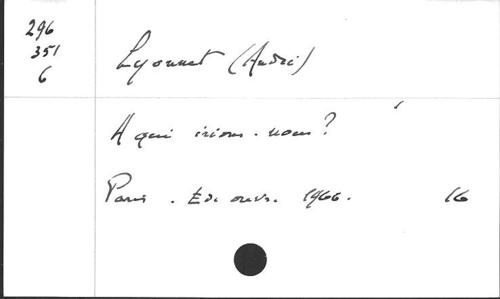 296
351
6
Lyonnet (André)
A qui irions-nous?
Paris. Ed. ouvr. 1966. 16